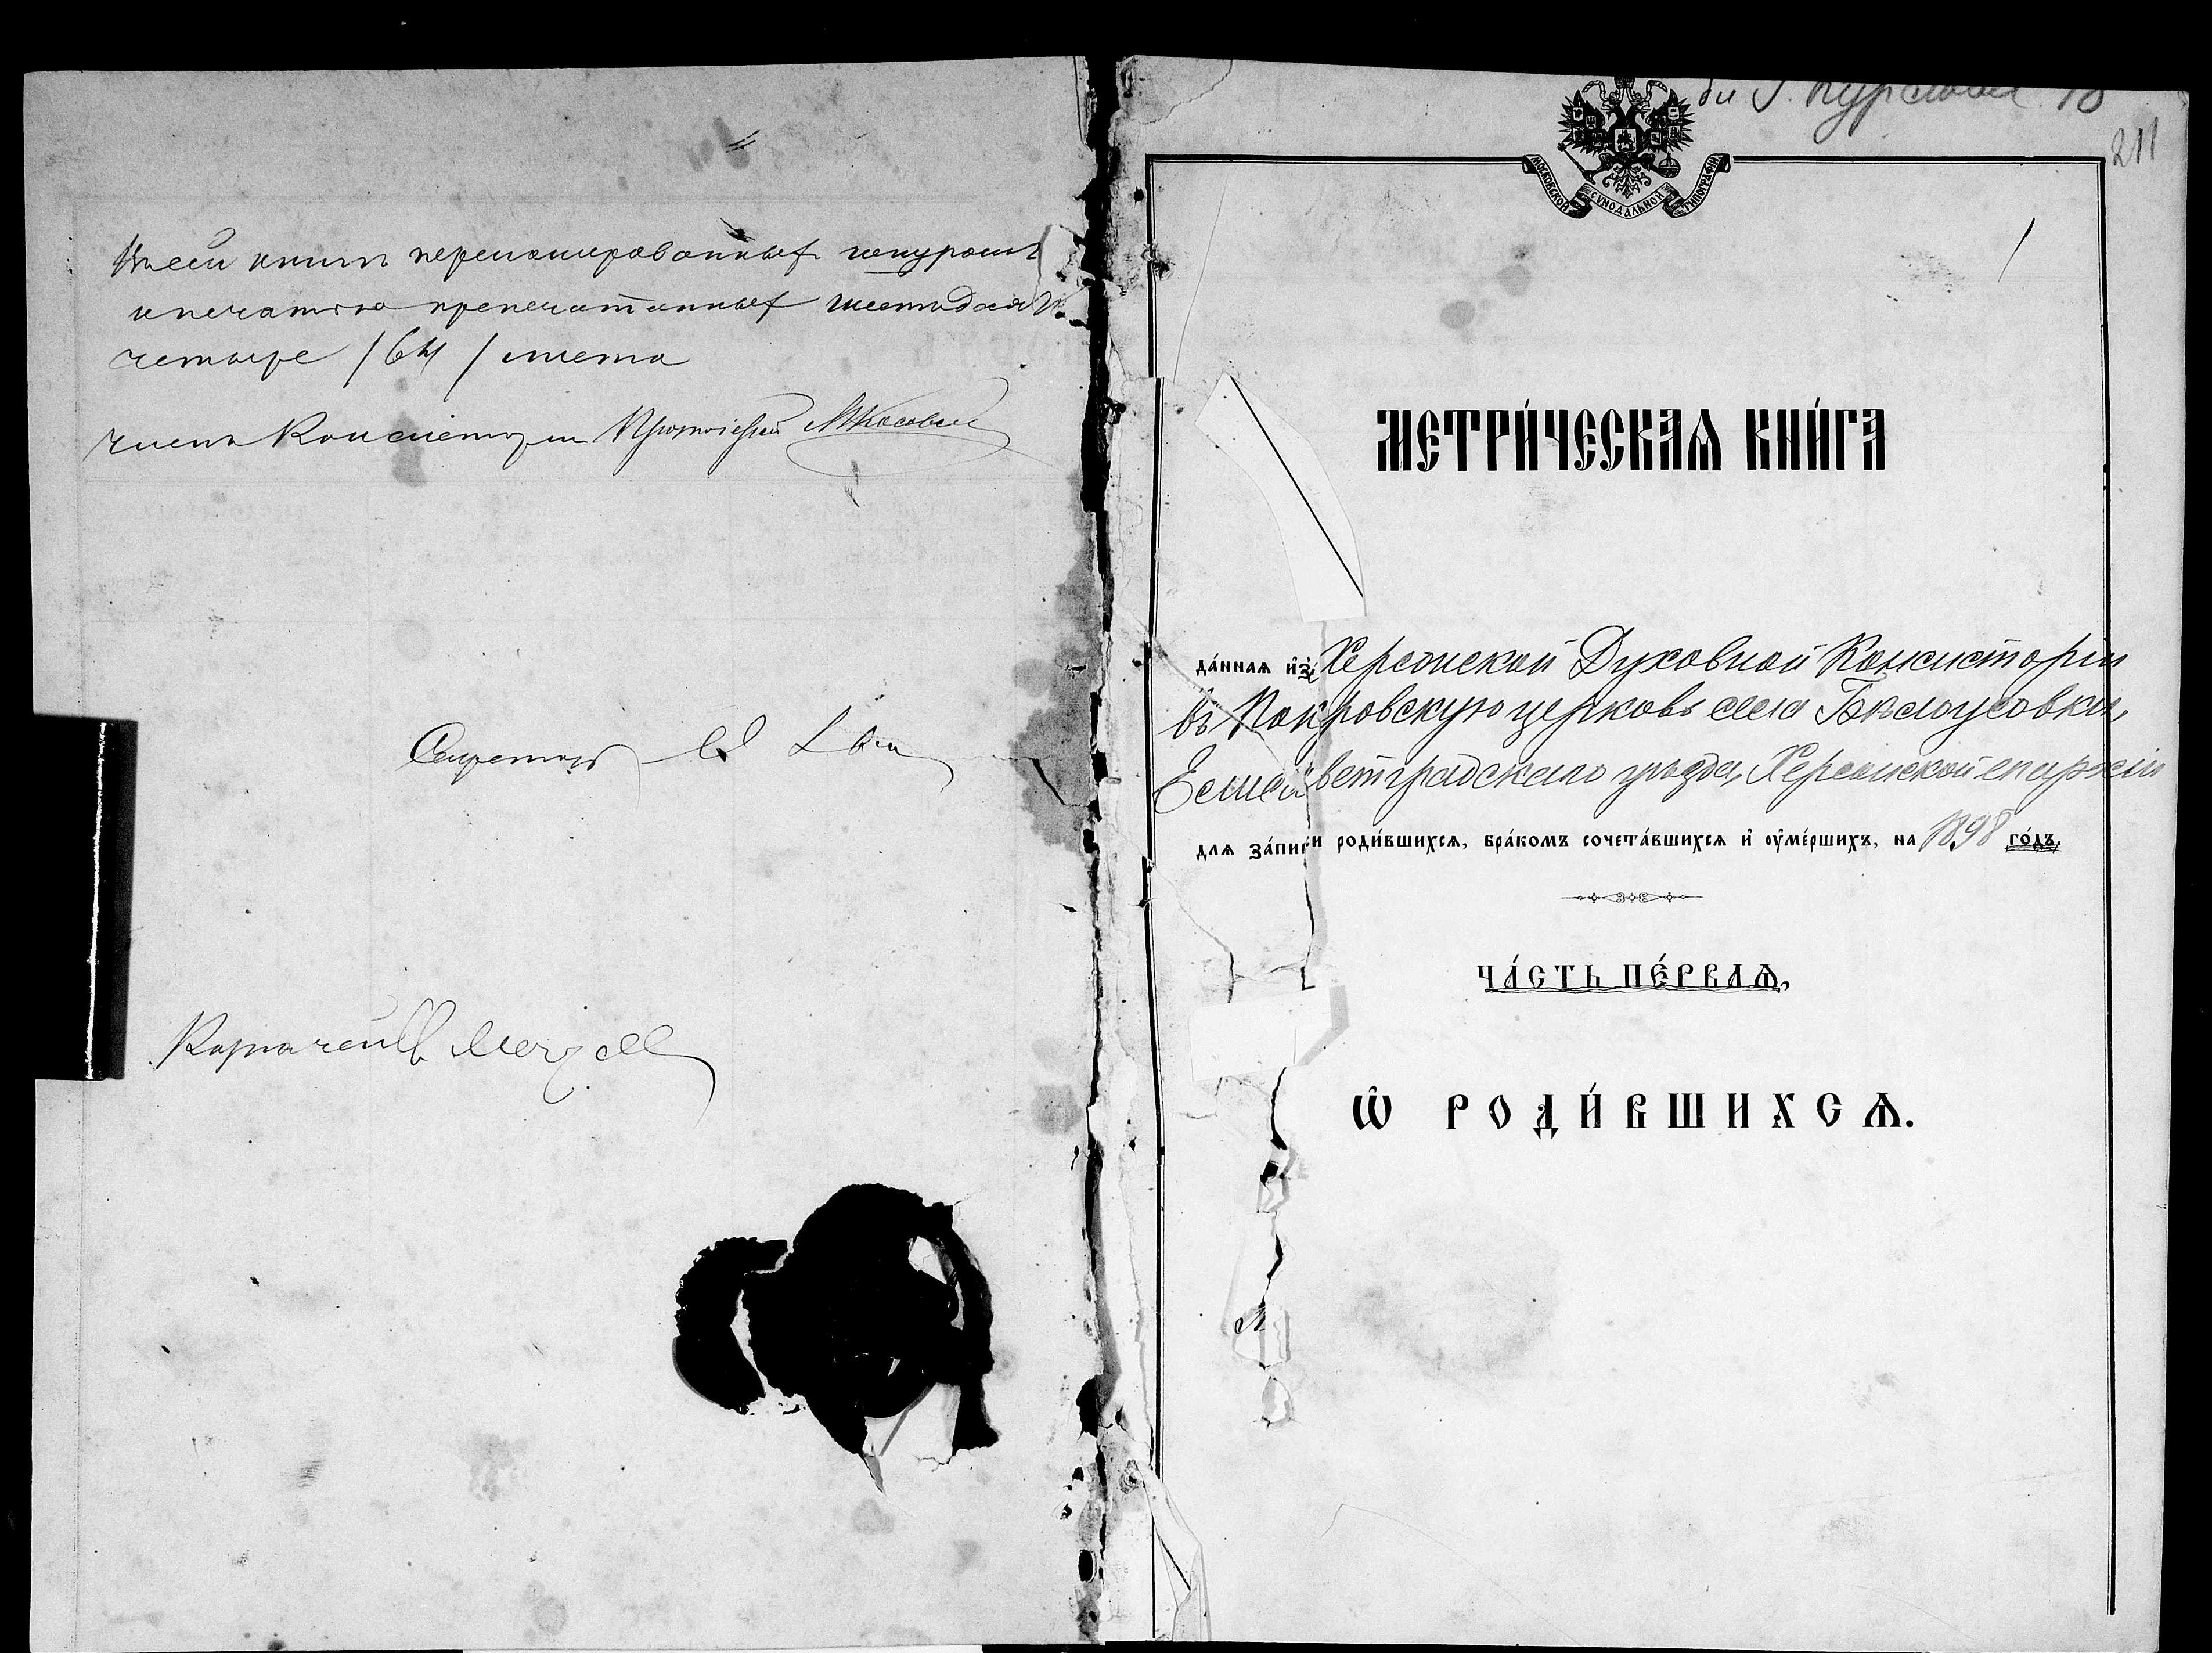 Въ сей книгѣ переномерованныхъ шнуромъ
и печатью препечатанныхъ шестьдесятъ
четыре /64/ листа
Членъ Консисторіи Протоіерей
Секретарь
МОСКОВСКОЙ СѴНОДАЛЬНОЙ ТИПОГРАФІИ
211
1
МЕТРИ́ЧЕСКАѦ КНИ́ГА
да́ннаѧ и҆зъ Херсонской Духовной Консисторіи
въ Покровскую церковь села Бѣлоусовки,
Елисаветградскаго уѣзда, Херсонской епархіи
длѧ за́писи роди́вшихсѧ, бра́комъ сочета́вшихсѧ и҆ ᲂу҆ме́ршихъ, на 1898 го́дъ.
ЧА́СТЬ ПЕ́РВАѦ,
Ѡ҆ РОДИ́ВШИХСѦ.